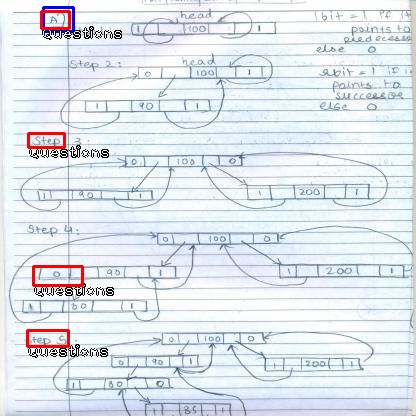 A)
Questions
head
1 100 1
lbit = 1 if it
points to
predecessor
else 0
Step 2:
head
0 100 1
rbit = 1 if it
points to
successor
else 0
1 90 1
Step 3:
Questions
0 100 0
1 90 1
1 200 1
Step 4:
0 100 0
0 90 1
1 200 1
Questions
1 80 1
Step 5
Questions
0 100 0
0 90 1
1 200 1
1 80 0
1 85 1